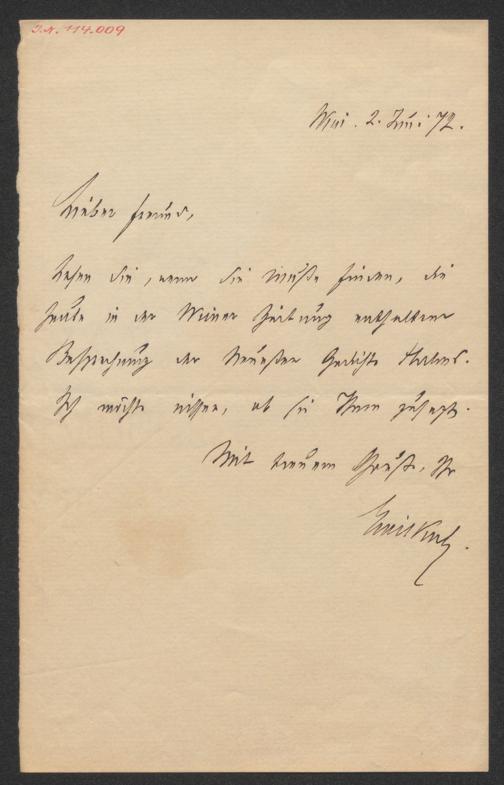 I.N. 114.009
2. Juni 72.
Lieber Freund,
Lesen Sie, wenn Sie Muße finden, die
heute in der Wiener Zeitung enthaltene
Besprechung der neuesten Gedichte Halms.
Ich möchte wissen, ob sie Ihnen zusagt.
Mit treuem Gruß, Ihr
Emil Kuh.